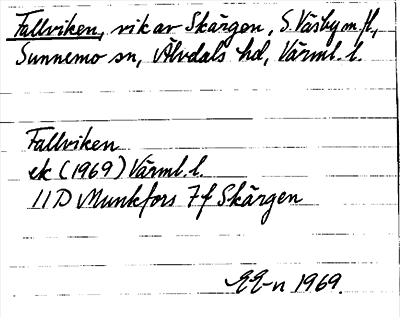 Fallviken, vik av Skärgen, S. Väsby m.fl.,
Sunnemo sn, Älvdals hd, Värml. l.
Fallviken
ek (1969) Värml. l.
11D Munkfors 7f Skärgen
EE-n 1969.